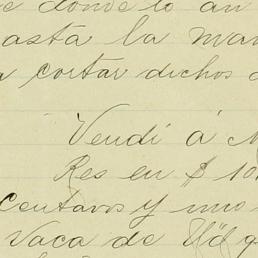 e donde lo an
asta la man
a cortar dichos
Vendi á
Res en $ 10
Centavos y uno
Vaca de